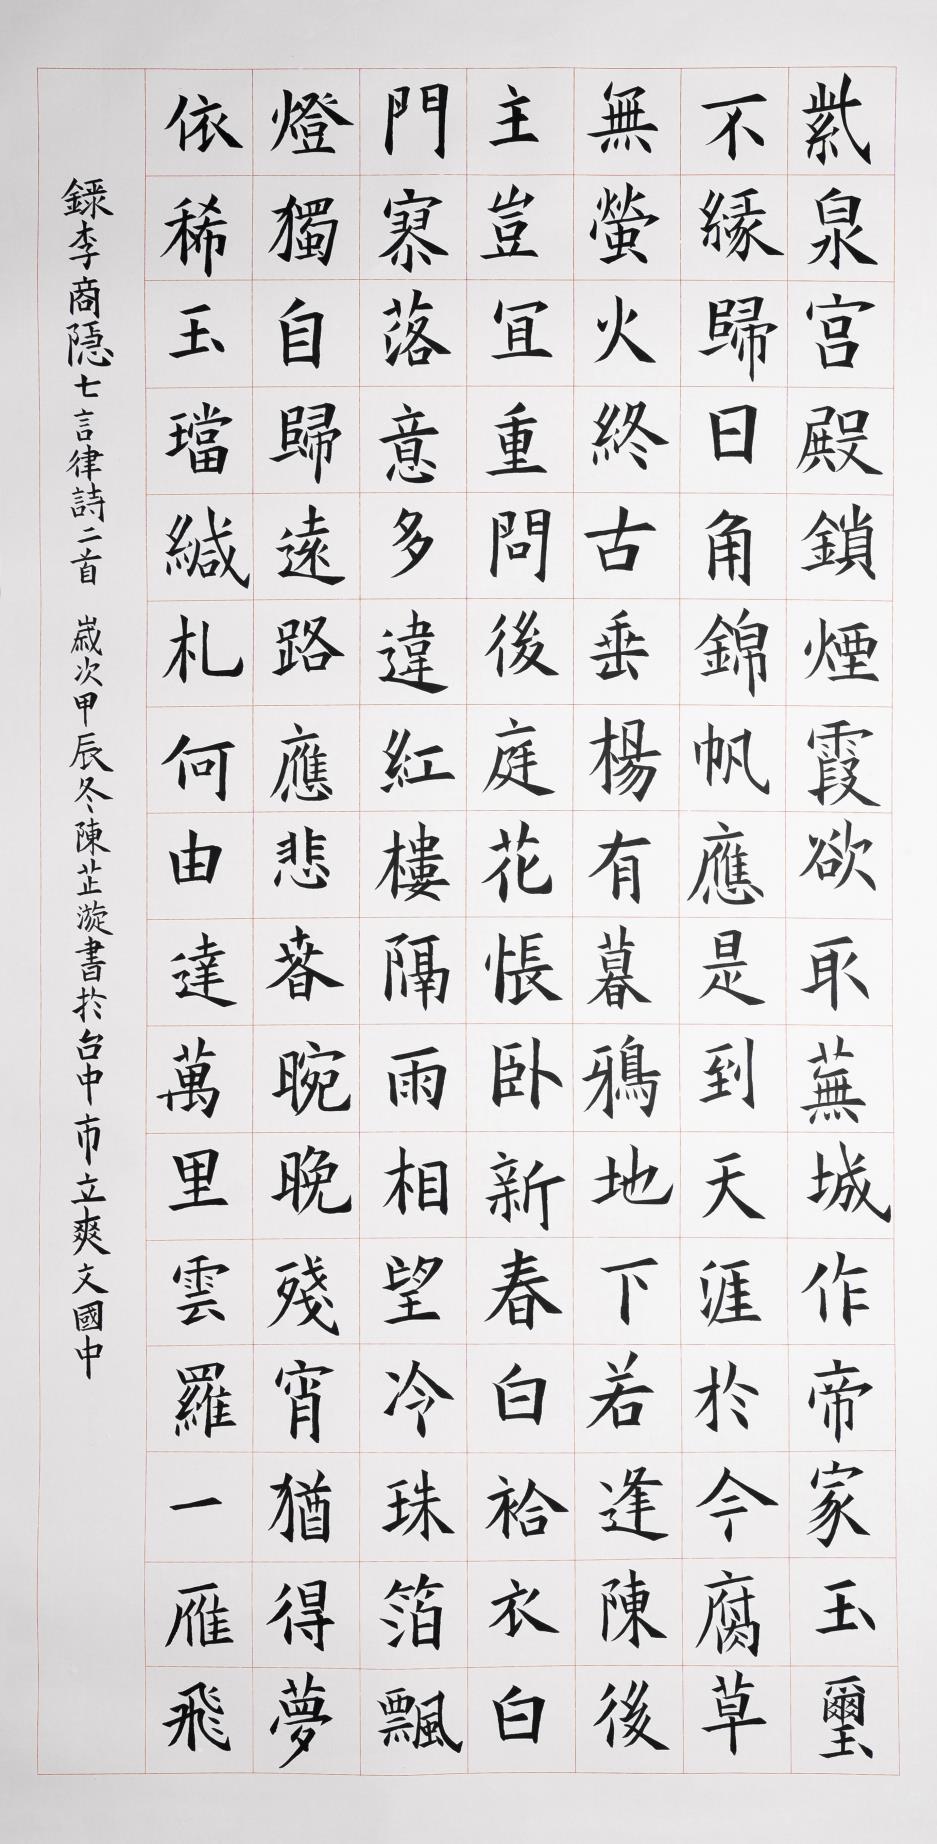 紫泉宮殿鎖煙霞欲取蕪城作帝家玉璽
不緣歸日角錦帆應是到天涯於今腐草
無螢火終古垂楊有暮鴉地下若逢陳後
主豈宜重問後庭花悵卧新春白袷衣白
門寥落意多違紅樓隔雨相望冷珠箔飄
燈獨自歸遠路應悲春晼晚殘宵猶得夢
依稀玉璫緘札何由達萬里雲羅一雁飛
錄李商隱七言律詩二首 歲次甲辰冬陳芷漩書於台中市立爽文國中